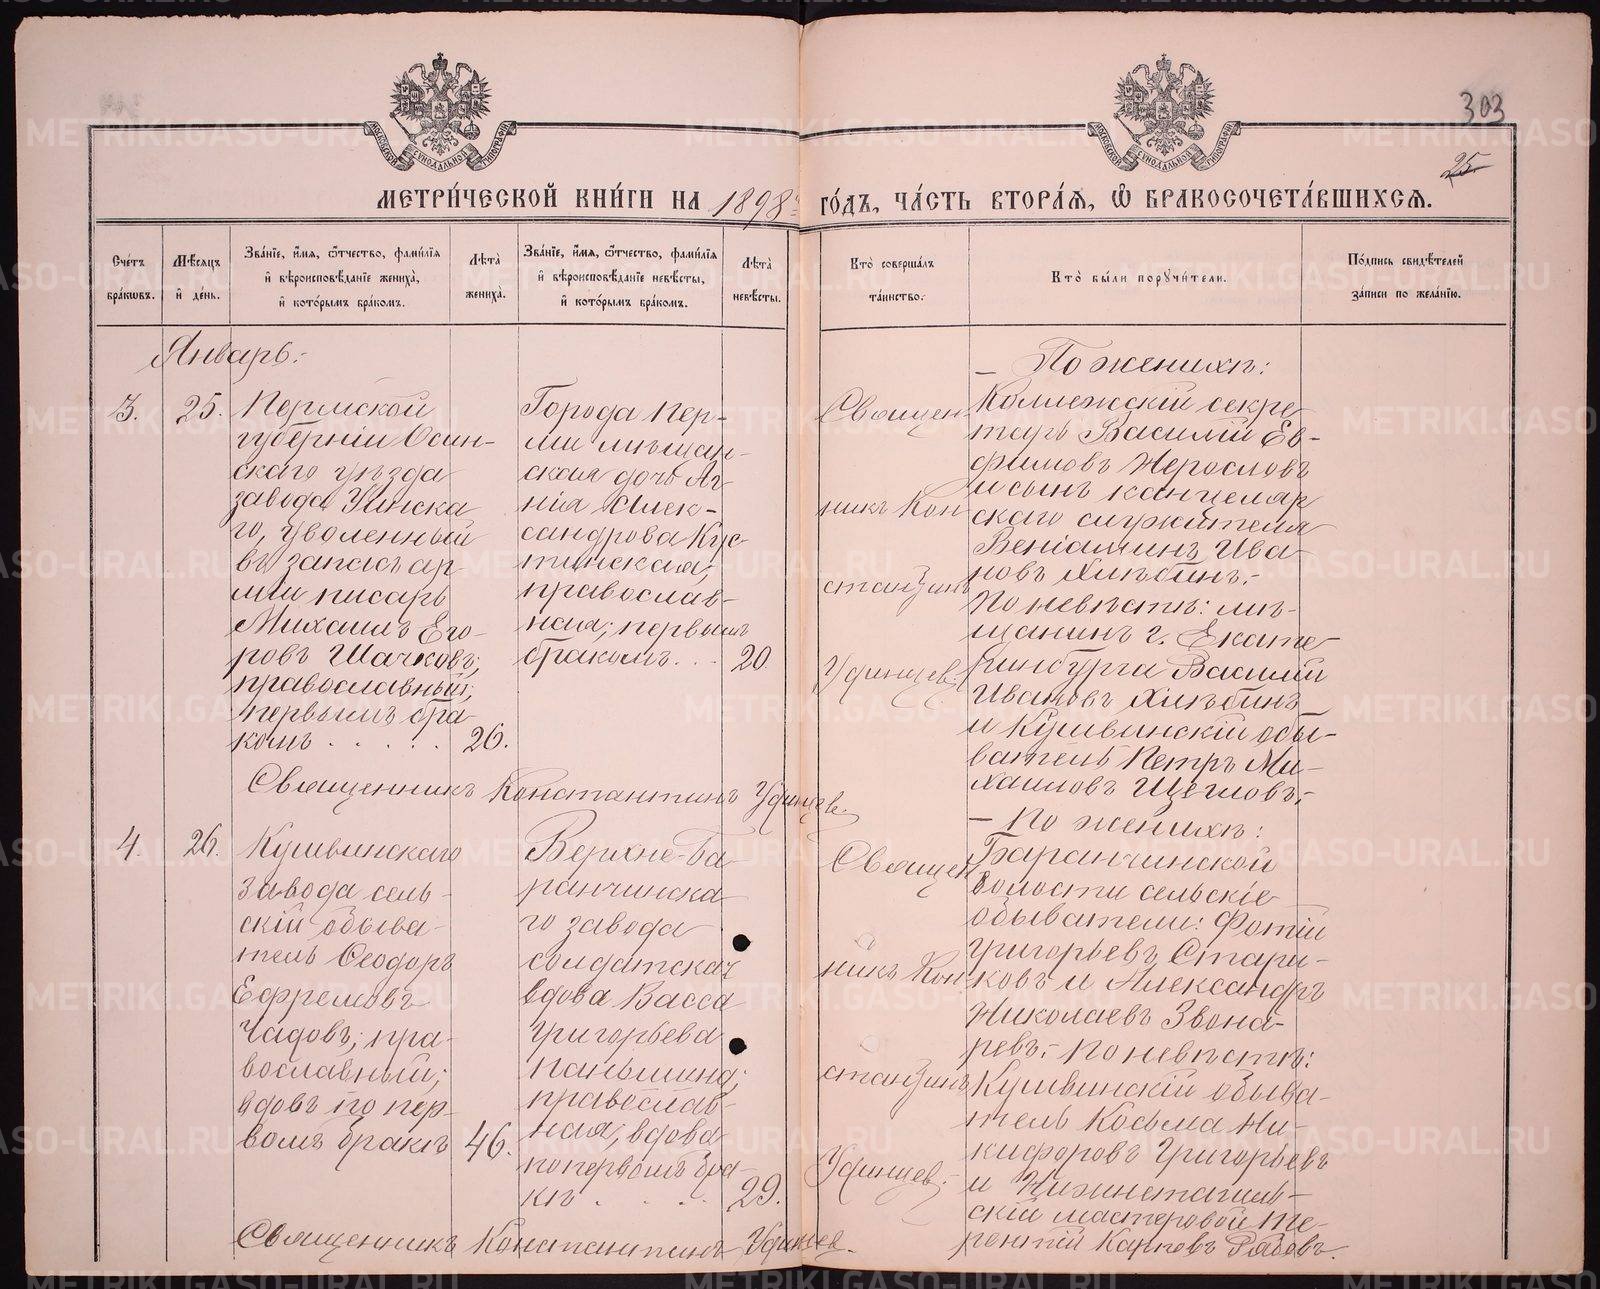 303
25
МЕТРИ́ЧЕСКОЙ КНИ́ГИ НА 1898й ГО́ДЪ, ЧА́СТЬ ВТОРА́Я, Ѿ БРАКОСОЧЕТА́ВШИХСЯ.
Сче́тъ бра́ковъ.
Мѣ́сяцъ и҆ де́нь.
Зва́нїе, и҆́мя, ѻ҆́тчество, фами́лїя и҆ вѣроисповѣ́данїе жениха̀, и҆ кото́рымъ бра́комъ.
Лѣ́та жениха̀.
Зва́нїе, и҆́мя, ѻ҆́тчество, фами́лїя и҆ вѣроисповѣ́данїе невѣ́сты, и҆ кото́рымъ бра́комъ.
Лѣ́та невѣ́сты.
Кто̀ соверша́лъ та́инство.
Кто̀ бы́ли поручи́тели.
По́дпись свидѣ́телей за́писи по жела́нїю.
Январь.
3.
25.
Пермской
губерніи Осин-
скаго уѣзда
завода Уинска
го, уволенный
въ запасъ ар-
міи писарь
Михаилъ Его-
ровъ Шачковъ;
православный,
первымъ бра-
комъ . . . . .
26.
Города Пер-
ми мѣщан-
ская дочь Аг-
нія Алек-
сандрова Кус-
тинская;
православ-
ная; первымъ
бракомъ. . .
20.
Священ
никъ Кон
стантинъ
Удинцев.
– По женихѣ:
Коллежскій секре
тарь Василій Ев-
фимовъ Нерословъ
и сынъ канцеляр
скаго служителя
Веніаминъ Ива-
новъ Хлѣбинъ.
По невѣстѣ: мѣ-
щанинъ г. Екате-
ринбурга Василій
Ивановъ Хлѣбинъ
и Кушвинскій обы-
ватель Петръ Ми-
хаиловъ Щегловъ.
Священникъ Константинъ Удинцев.
4.
26.
Кушвинскаго
завода сель-
скій обыва-
тель Ѳеодоръ
Ефремовъ
Чадовъ; пра-
вославный;
вдовъ по пер-
вомъ бракѣ
46.
Верхне-Ба
ранчинска
го завода
солдатская
вдова Васса
Григорьева
Паньшина;
православ-
ная, вдова
по первомъ бра-
кѣ . . . .
29.
Священ
никъ Кон
стантинъ
Удинцев.
– По женихѣ:
Баранчинской
волости сельскіе
обыватели: Фотій
Григорьевъ Стари-
ковъ и Александръ
Николаевъ Звона-
ревъ. По невѣстѣ:
Кушвинскій обыва-
тель Косьма Ни-
кифоровъ Григорьевъ
и Нижнетагиль-
скій мастеровой Те-
рентій Карповъ Рябовъ.
Священникъ Константинъ Удинцев.
METRIKI.GASO-URAL.RU